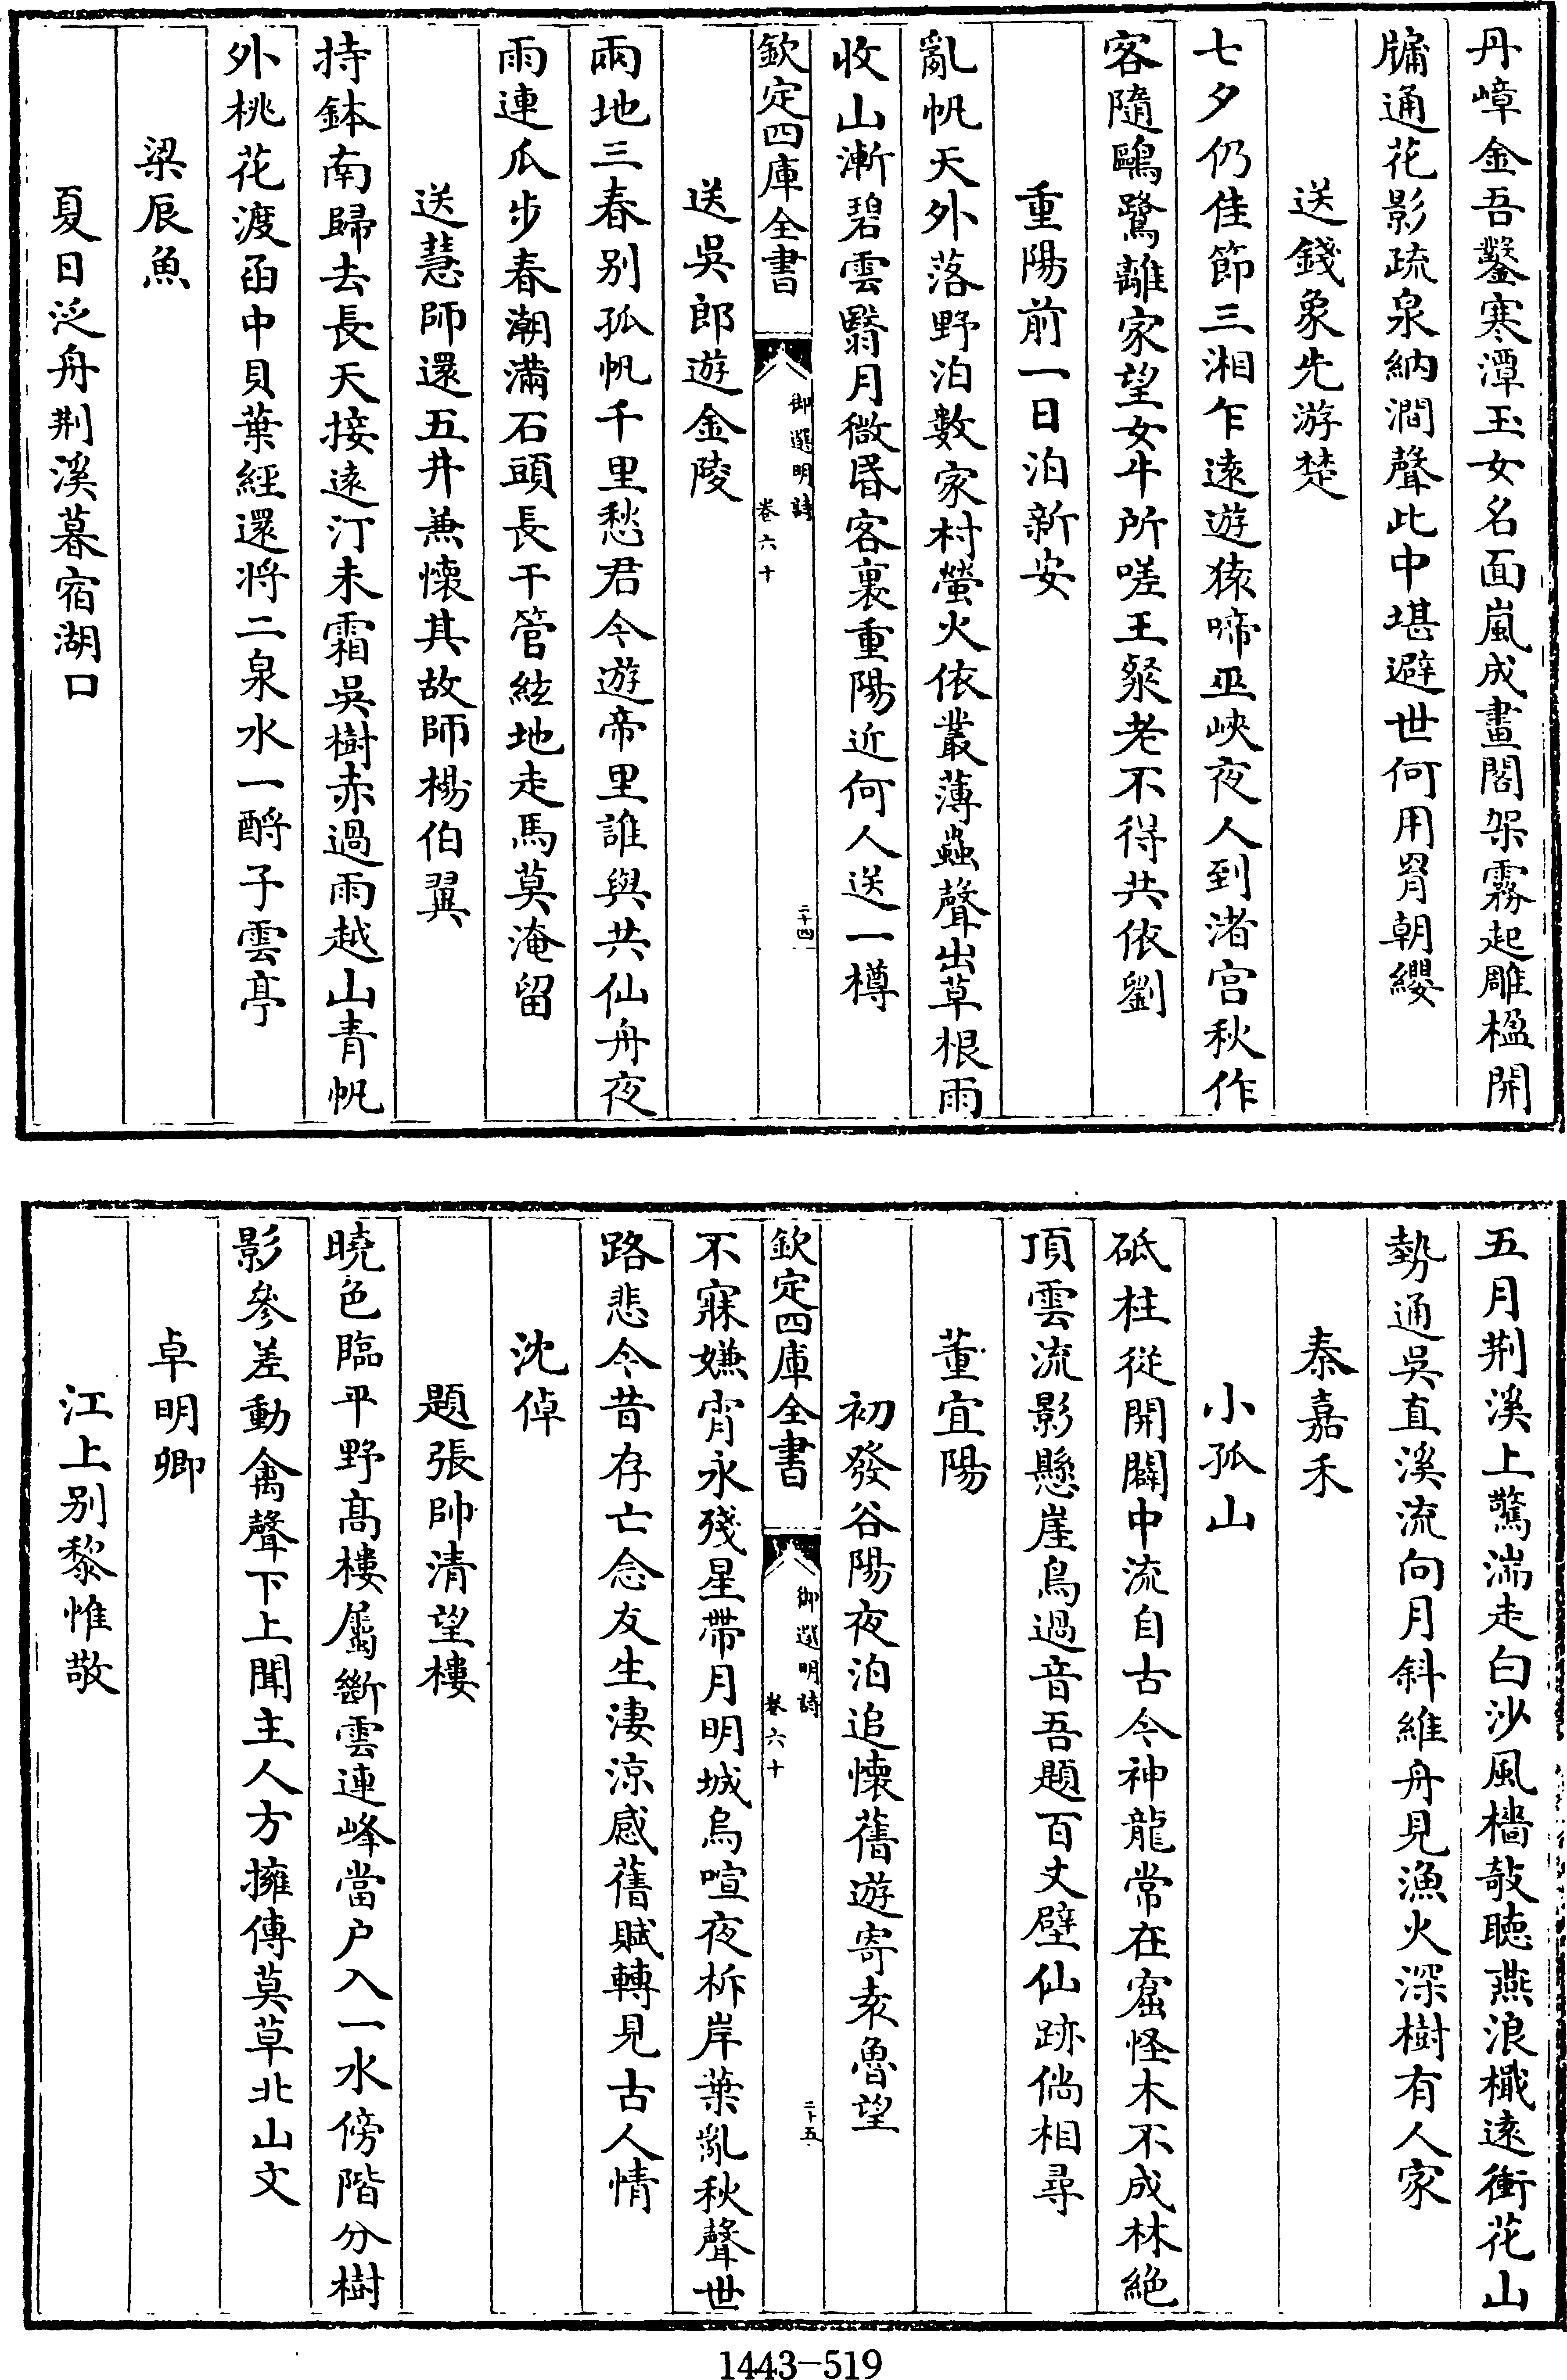 丹嶂金吾鑿寒潭玉女名面嵐成畫閣架霧起雕楹開
牗通花影疏泉納澗聲此中堪避世何用胃朝纓
送錢象先游楚
七夕仍佳節三湘乍遠遊猿啼巫峽夜人到渚宮秋作
客隨鷗鷺離家望女牛所嗟王粲老不得共依劉
重陽前一日泊新安
亂帆天外落野泊數家村螢火依叢薄蟲聲出草根雨
收山漸碧雲翳月微昏客裏重陽近何人送一樽
欽定四庫全書
御選明詩
卷六十
二十四
送吳郎遊金陵
兩地三春别孤帆千里愁君今遊帝里誰與共仙舟夜
雨連瓜步春潮滿石頭長干管絃地走馬莫淹留
送慧師還五井兼懷其故師楊伯翼
持鉢南歸去長天接遠汀未霜吳樹赤過雨越山青帆
外桃花渡函中貝葉經還将二泉水一酹子雲亭
梁辰魚
夏日泛舟荆溪暮宿湖口
五月荆溪上驚湍走白沙風檣敧聴燕浪檝遠衝花山
勢通吳直溪流向月斜維舟見漁火深樹有人家
秦嘉禾
小孤山
砥柱從開闢中流自古今神龍常在窟怪木不成林絶
頂雲流影懸崖鳥過音吾題百丈壁仙跡倘相尋
董宜陽
初發谷陽夜泊追懷舊遊寄袁魯望
欽定四庫全書
御選明詩
卷六十
二十五
不寐嫌宵永殘星帶月明城烏喧夜柝岸葉亂秋聲世
路悲今昔存亡念友生淒涼感舊賦轉見古人情
沈倬
題張帥清望樓
曉色臨平野髙樓屬斷雲連峰當户入一水傍階分樹
影參差動禽聲下上聞主人方擁傳莫草北山文
卓明卿
江上别黎惟敬
1443-519